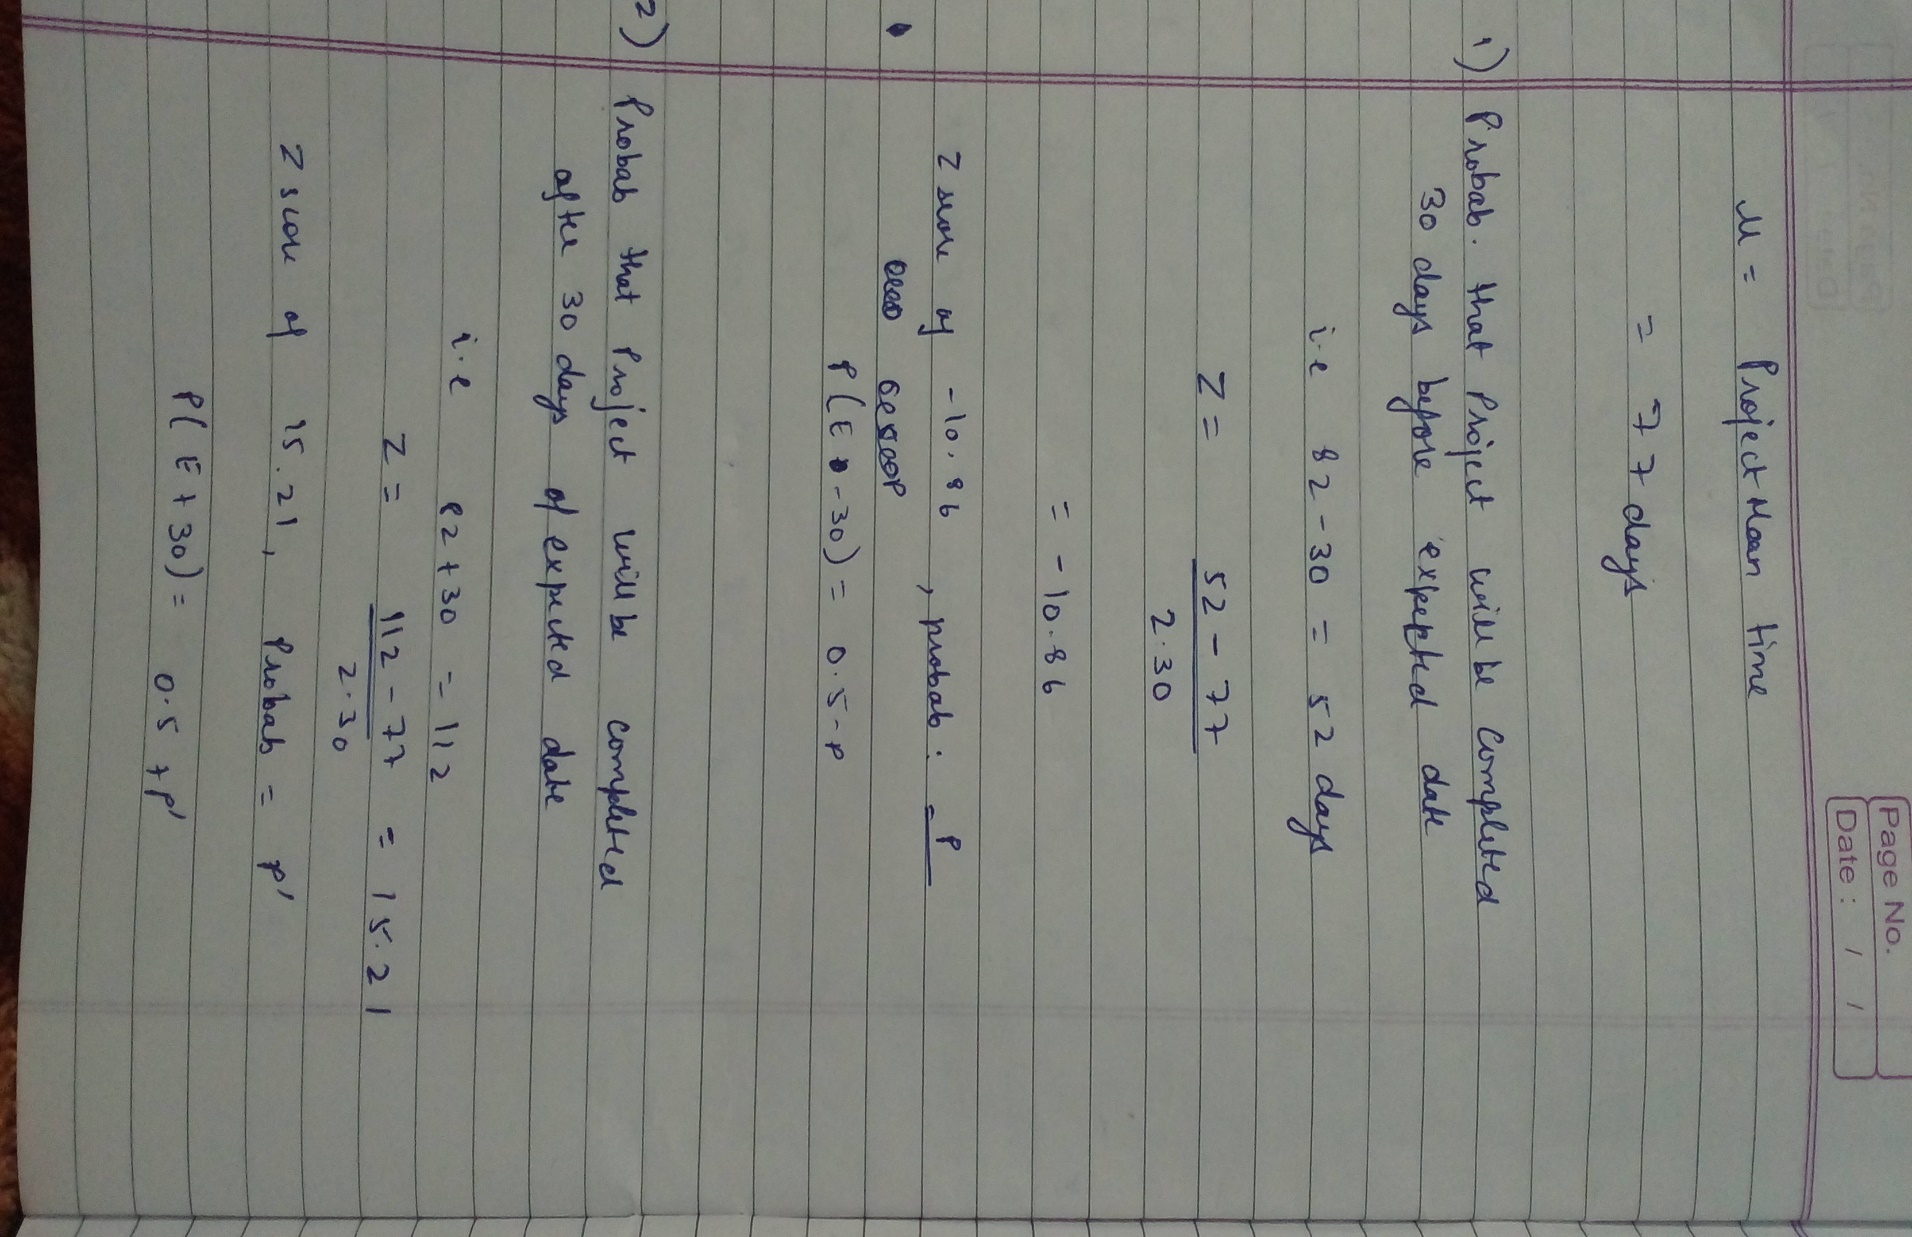 Page No.
Date : / /
M = Project Mean time
= 77 days
1) Probab. that Project will be Completed
30 days before expected date
i.e 82 - 30 = 52 days
Z = 52 - 77
2.30
= - 10.86
Z score of -10.86 , probab. = P
P(E -30) = 0.5 - P
2) Probab that Project will be completed
after 30 days of expected date
i.e 82 + 30 = 112
Z = 112 - 77 = 15.21
2.30
Z score of 15.21, Probab = P'
P(E + 30) = 0.5 + P'